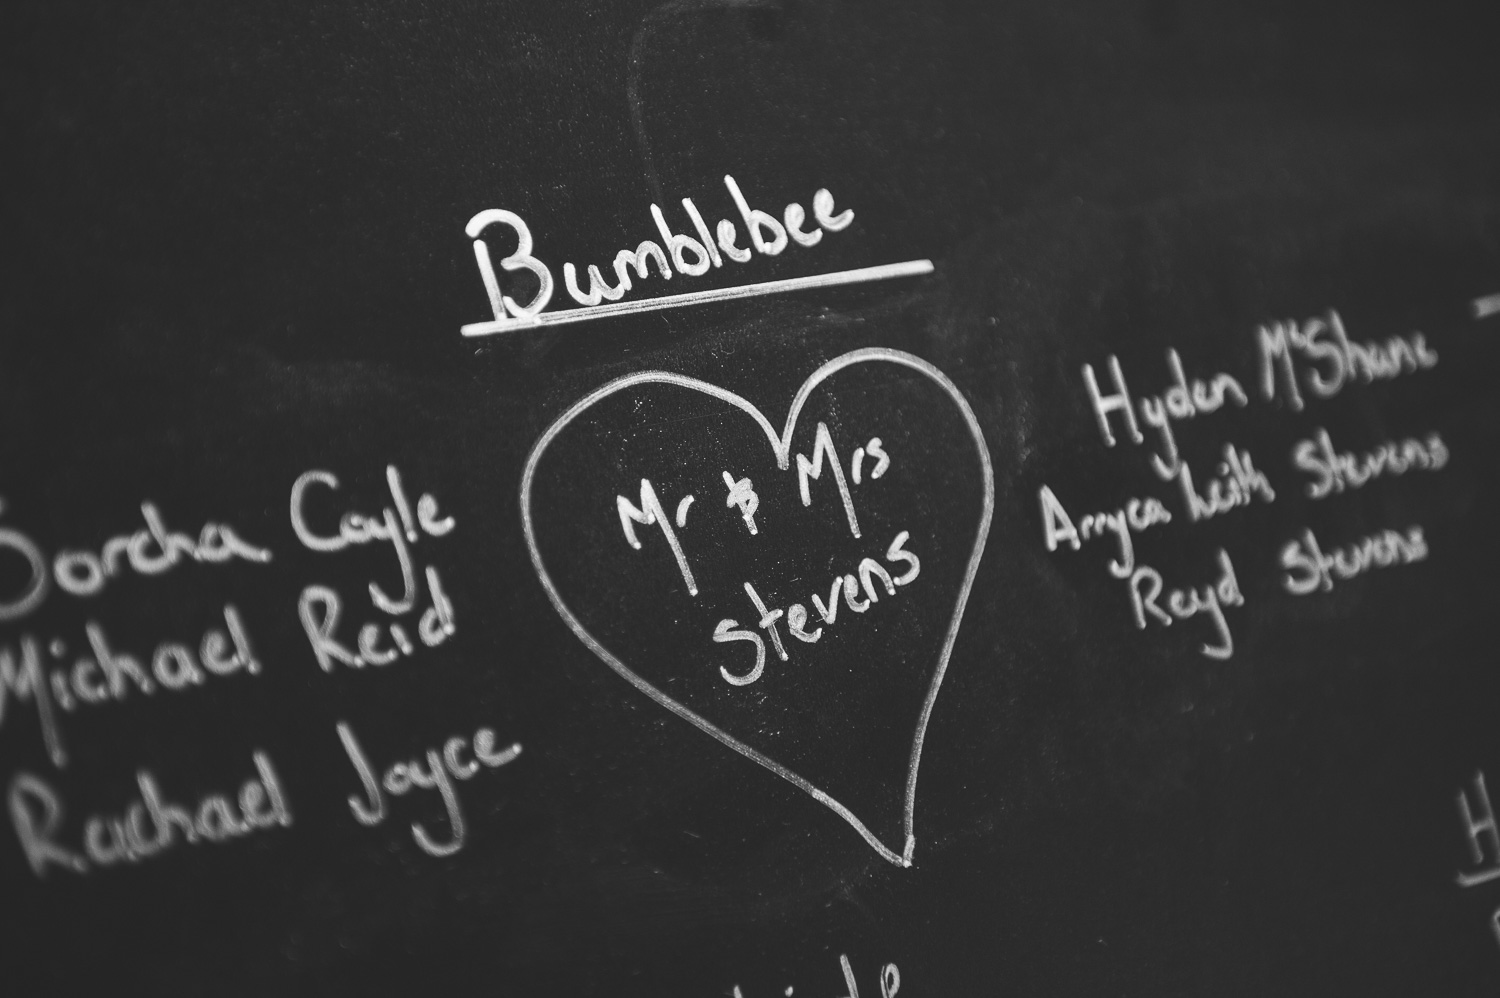 Bumblebee
Mr & Mrs
Stevens
Sorcha Coyle
Michael Reid
Rachael Joyce
Hyden McShane
Arryea Leith Stevens
Reyd Stevens